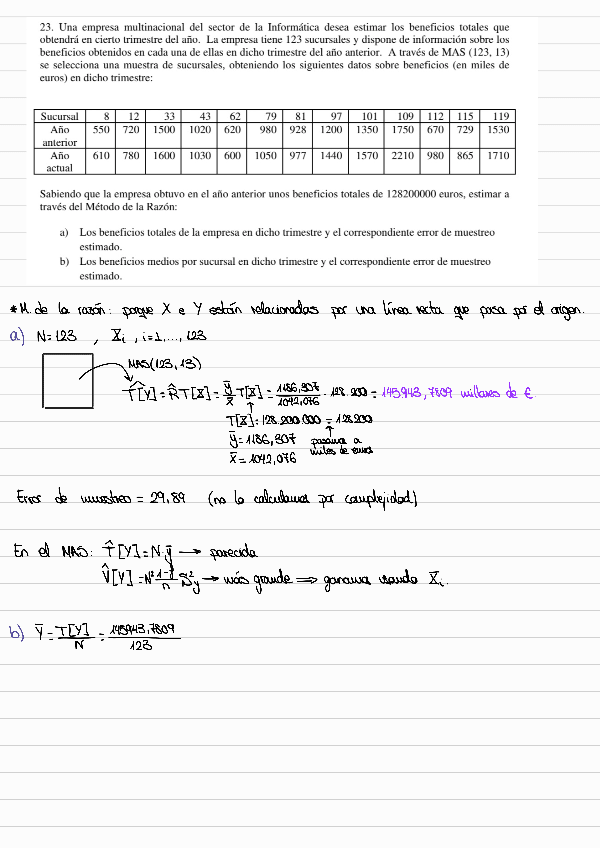 23. Una empresa multinacional del sector de la Informática desea estimar los beneficios totales que
obtendrá en cierto trimestre del año. La empresa tiene 123 sucursales y dispone de información sobre los
beneficios obtenidos en cada una de ellas en dicho trimestre del año anterior. A través de MAS (123, 13)
se selecciona una muestra de sucursales, obteniendo los siguientes datos sobre beneficios (en miles de
euros) en dicho trimestre:
Sucursal 8 12 33 43 62 79 81 97 101 109 112 115 119
Año anterior 550 720 1500 1020 620 980 928 1200 1350 1750 670 729 1530
Año actual 610 780 1600 1030 600 1050 977 1440 1570 2210 980 865 1710
Sabiendo que la empresa obtuvo en el año anterior unos beneficios totales de 128200000 euros, estimar a
través del Método de la Razón:
a) Los beneficios totales de la empresa en dicho trimestre y el correspondiente error de muestreo
estimado.
b) Los beneficios medios por sucursal en dicho trimestre y el correspondiente error de muestreo
estimado.
* M. de la razón: porque X e Y están relacionadas por una línea recta que pasa por el origen.
a) N=123 , X̄i , i=1,...,123
MAS(123,13)
T̂[Y]=R̂ T[X]=ȳ/x̄ T[X]=1186,307/1042,076 · 128.200 = 145943,7809 millares de €
T[X]=128.200.000=128200
ȳ=1186,307 pasamos a
x̄=1042,076 miles de euros
Error de muestreo = 29,89 (no lo calculamos por complejidad)
En el MAS: T̂[Y]=N·ȳ → parecida
V̂[Y]=N² 1-f/n Ŝ²y → más grande ⟹ ganamos usando X̄i.
b) Ȳ = T[Y]/N = 145943,7809/123